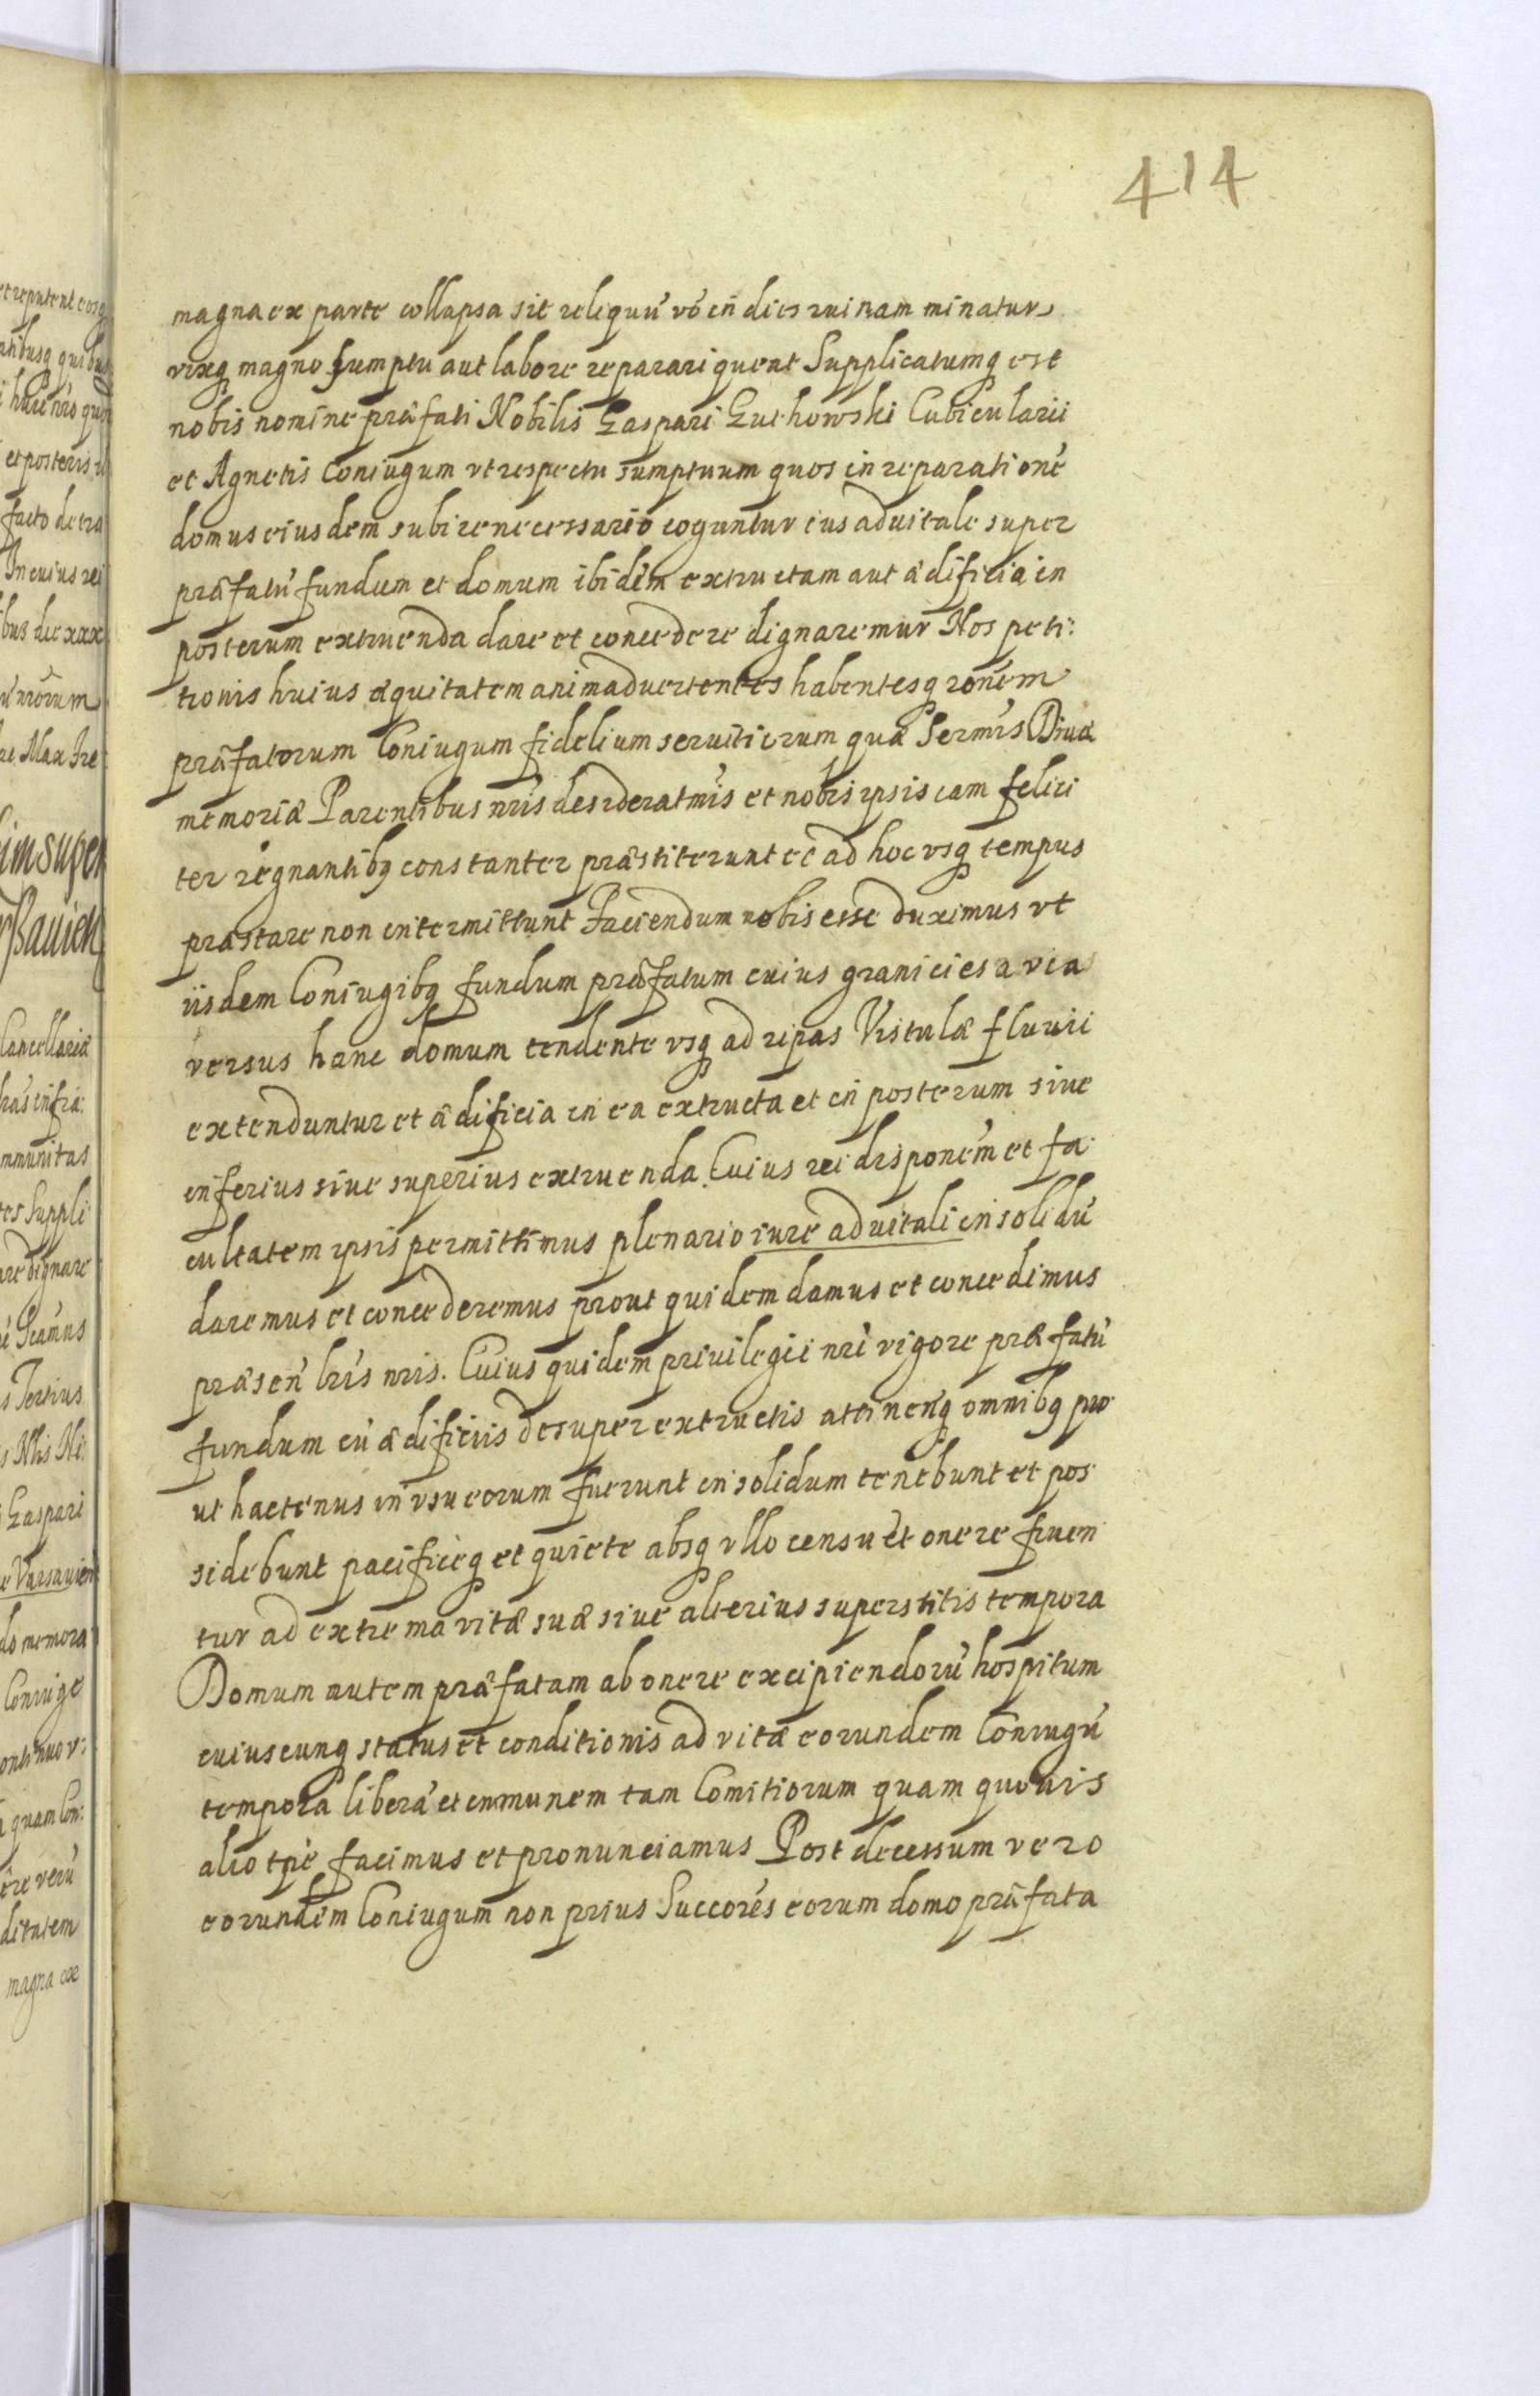 414
magna ex parte collapsa sit reliquū vō in dies ruinam minatur
vixq magno sumptu aut labore reparari queat Supplicatumq est
nobis nomine præfati Nobilis Gaspari Zuchowski Cubicularii
et Agnetis Coniugum vt respectu sumptuum quos in reparationē
domus eiusdem subire necessario coguntur ius aduitale super
præfatū fundum et domum ibidem extructam aut ædificia in
posterum extruenda dare et concedere dignaremur Nos peti:
tionis huius æquitatem animaduertentes habentesq ronēm
præfatorum Coniugum fidelium seruitiorum quæ Sermīs Diuæ
memoriæ Parentibus nrīs desideratmīs et nobis ipsis iam felici
ter regnantibq constanter præstiterunt et ad hoc vsq tempus
præstare non intermittunt Faciendum nobis esse duximus vt
iisdem Coniugibq fundum præfatum cuius granicies a via
versus hanc domum tendente vsq ad ripas Vistulæ fluuii
extenduntur et ædificia in ea extructa et in posterum siue
inferius siue superius extruenda. Cuius rei disponēm et fa
cultatem ipsis permittimus plenario iure aduitali in solidū
daremus et concederemus prout quidem damus et concedimus
præsen̄ lrīs nrīs. Cuius quidem priuilegii nrī vigore præfatū
fundum cū ædificiis desuper extructis attinen̄q omnibq pro
ut hactenus in vsu eorum fuerunt in solidum tenebunt et pos
sidebunt pacificèq et quiete absq vllo censu et onere fruen
tur ad extrema vitæ suæ siue alterius superstitis tempora
Domum autem præfatam ab onere excipiendorū hospitum
cuiuscunq status et conditionis ad vitæ eorundem Coniugū
tempora liberā et immunem tam Comitiorum quam quouis
alio tpē facimus et pronunciamus Post decessum vero
eorundem Coniugum non prius Succorēs eorum domo præfata